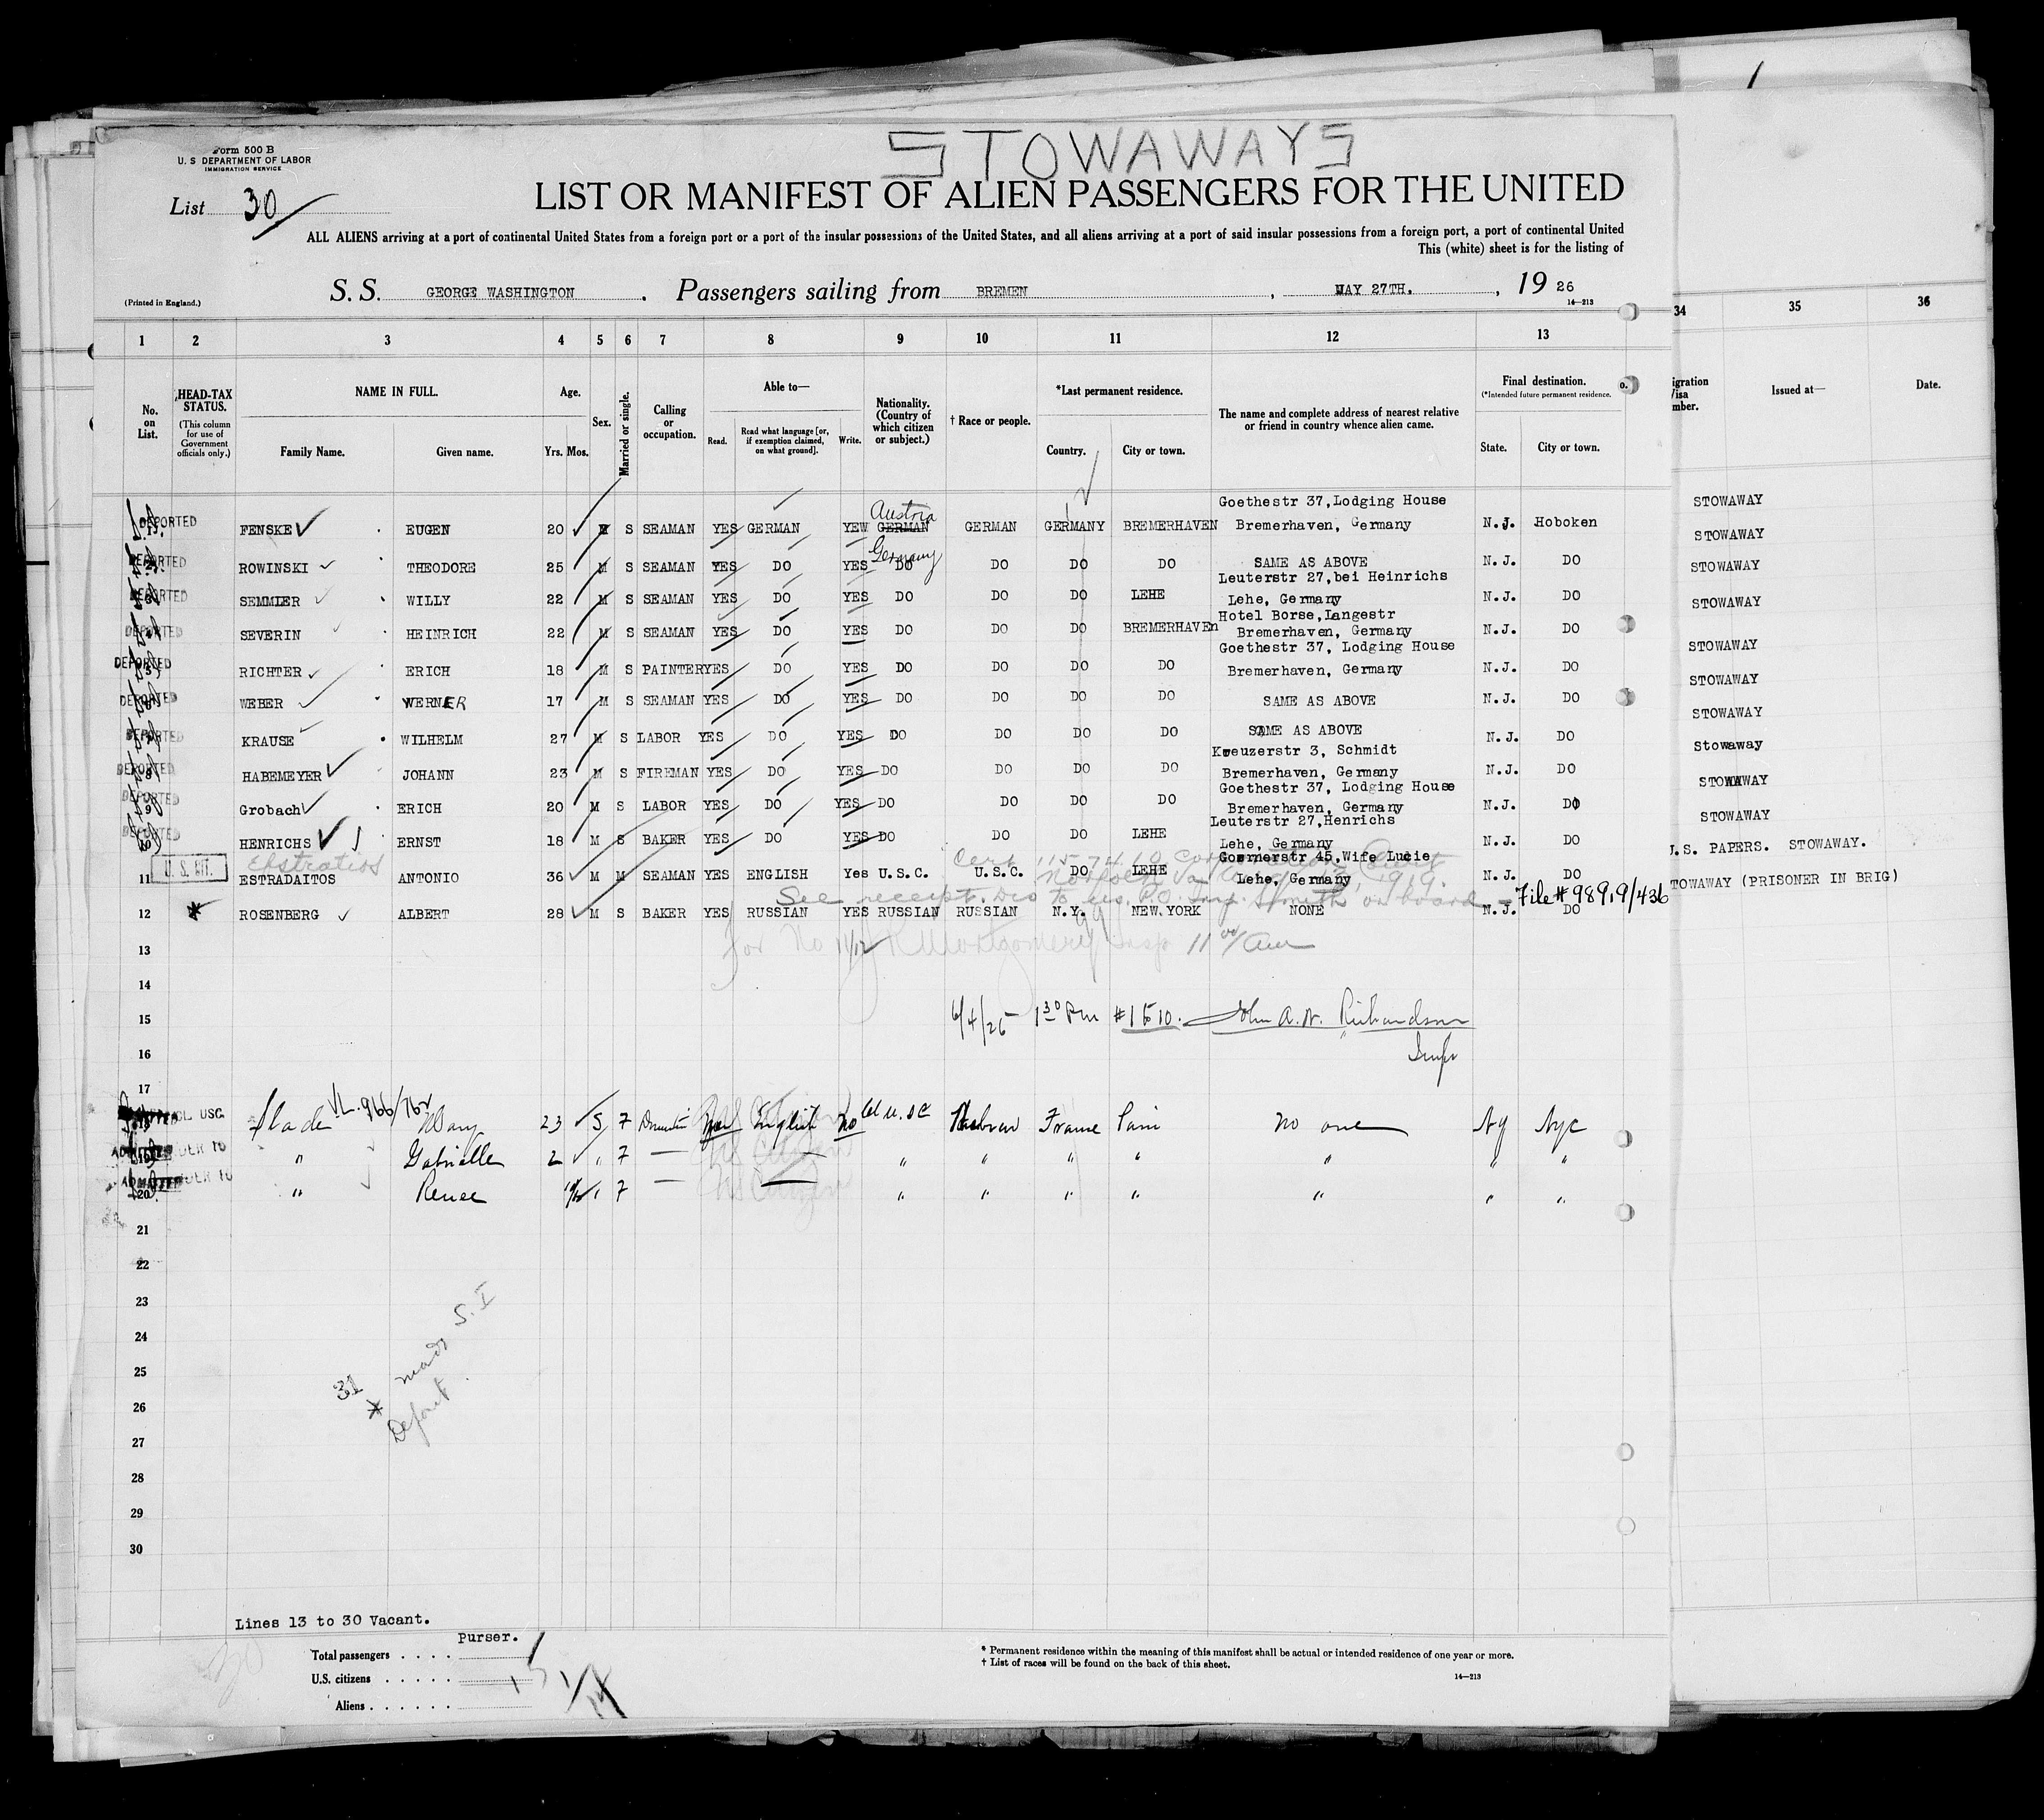 STOWAWAYS
Form 500 B
U. S DEPARTMENT OF LABOR
IMMIGRATION SERVICE
List 30
LIST OR MANIFEST OF ALIEN PASSENGERS FOR THE UNITED
ALL ALIENS arriving at a port of continental United States from a foreign port or a port of the insular possessions of the United States, and all aliens arriving at a port of said insular possessions from a foreign port, a port of continental United
This (white) sheet is for the listing of
(Printed in England.)
S. S. GEORGE WASHINGTON . Passengers sailing from BREMEN , MAY 27TH. , 19 26
14—213
1 2 3 4 5 6 7 8 9 10 11 12 13 34 35 36
No. on List.
HEAD-TAX STATUS.
(This column for use of Government officials only.)
NAME IN FULL.
Family Name. Given name.
Age.
Yrs. Mos.
Sex.
Married or single.
Calling or occupation.
Able to—
Read. Read what language [or, if exemption claimed, on what ground]. Write.
Nationality. (Country of which citizen or subject.)
† Race or people.
*Last permanent residence.
Country. City or town.
The name and complete address of nearest relative or friend in country whence alien came.
Final destination.
(*Intended future permanent residence.
State. City or town.
o.
igration
Visa
mber.
Issued at—
Date.
Goethestr 37, Lodging House STOWAWAY
DEPORTED FENSKE EUGEN 20 M S SEAMAN YES GERMAN YEW GERMAN Austria GERMAN GERMANY BREMERHAVEN Bremerhaven, Germany N.J. Hoboken STOWAWAY
Germany
DEPORTED ROWINSKI THEODORE 25 M S SEAMAN YES DO YES DO DO DO DO SAME AS ABOVE N.J. DO STOWAWAY
Leuterstr 27, bei Heinrichs
DEPORTED SEMMLER WILLY 22 M S SEAMAN YES DO YES DO DO DO LEHE Lehe, Germany N.J. DO STOWAWAY
Hotel Borse, Langestr
DEPORTED SEVERIN HEINRICH 22 M S SEAMAN YES DO YES DO DO DO BREMERHAVEN Bremerhaven, Germany N.J. DO STOWAWAY
Goethestr 37, Lodging House
DEPORTED RICHTER ERICH 18 M S PAINTER YES DO YES DO DO DO DO Bremerhaven, Germany N.J. DO STOWAWAY
DEPORTED WEBER WERNER 17 M S SEAMAN YES DO YES DO DO DO DO SAME AS ABOVE N.J. DO STOWAWAY
DEPORTED KRAUSE WILHELM 27 M S LABOR YES DO YES DO DO DO DO SAME AS ABOVE N.J. DO Stowaway
Kreuzerstr 3, Schmidt
DEPORTED 8 HABEMEYER JOHANN 23 M S FIREMAN YES DO YES DO DO DO DO Bremerhaven, Germany N.J. DO STOWAWAY
Goethestr 37, Lodging House
DEPORTED 9 Grobach ERICH 20 M S LABOR YES DO YES DO DO DO DO Bremerhaven, Germany N.J. DO STOWAWAY
Leuterstr 27, Henrichs
DEPORTED 10 HENRICHS ERNST 18 M S BAKER YES DO YES DO DO DO LEHE Lehe, Germany N.J. DO U.S. PAPERS. STOWAWAY.
Elstratios
Goernerstr 45, Wife Lucie
11 U.S. CIT. ESTRADAITOS ANTONIO 36 M M SEAMAN YES ENGLISH Yes U.S.C. U.S.C. DO LEHE Lehe, Germany N.J. DO STOWAWAY (PRISONER IN BRIG)
Cert 1157410 Court
Norfolk Va 1919
See receipt on board - File # 98919/436
12 * ROSENBERG ALBERT 28 M S BAKER YES RUSSIAN YES RUSSIAN RUSSIAN N.Y. NEW YORK NONE N.J. DO
For No 11/12 R Montgomery Insp 11 00/Am
13
14
15 6/4/26 1 30 Pm #1510. John A. W. Richardson
16 Insp
17
USC Slade VL. 966/762 Mary 23 S F Domestic Yes English No Cl U.S.C Hebrew France Paris no one NY Nyc
ADMITTED UNDER 16 " Gabrielle 2 " F — — " " " " " " "
ADMITTED UNDER 16 20 " Renee " F — — " " " " " " "
21
22
23
24
25
26
27
28
29
30
made S. I
31
* Deport
Lines 13 to 30 Vacant.
Purser.
Total passengers . . . .
U.S. citizens . . . . .
Aliens . . . . . .
* Permanent residence within the meaning of this manifest shall be actual or intended residence of one year or more.
† List of races will be found on the back of this sheet.
14—213